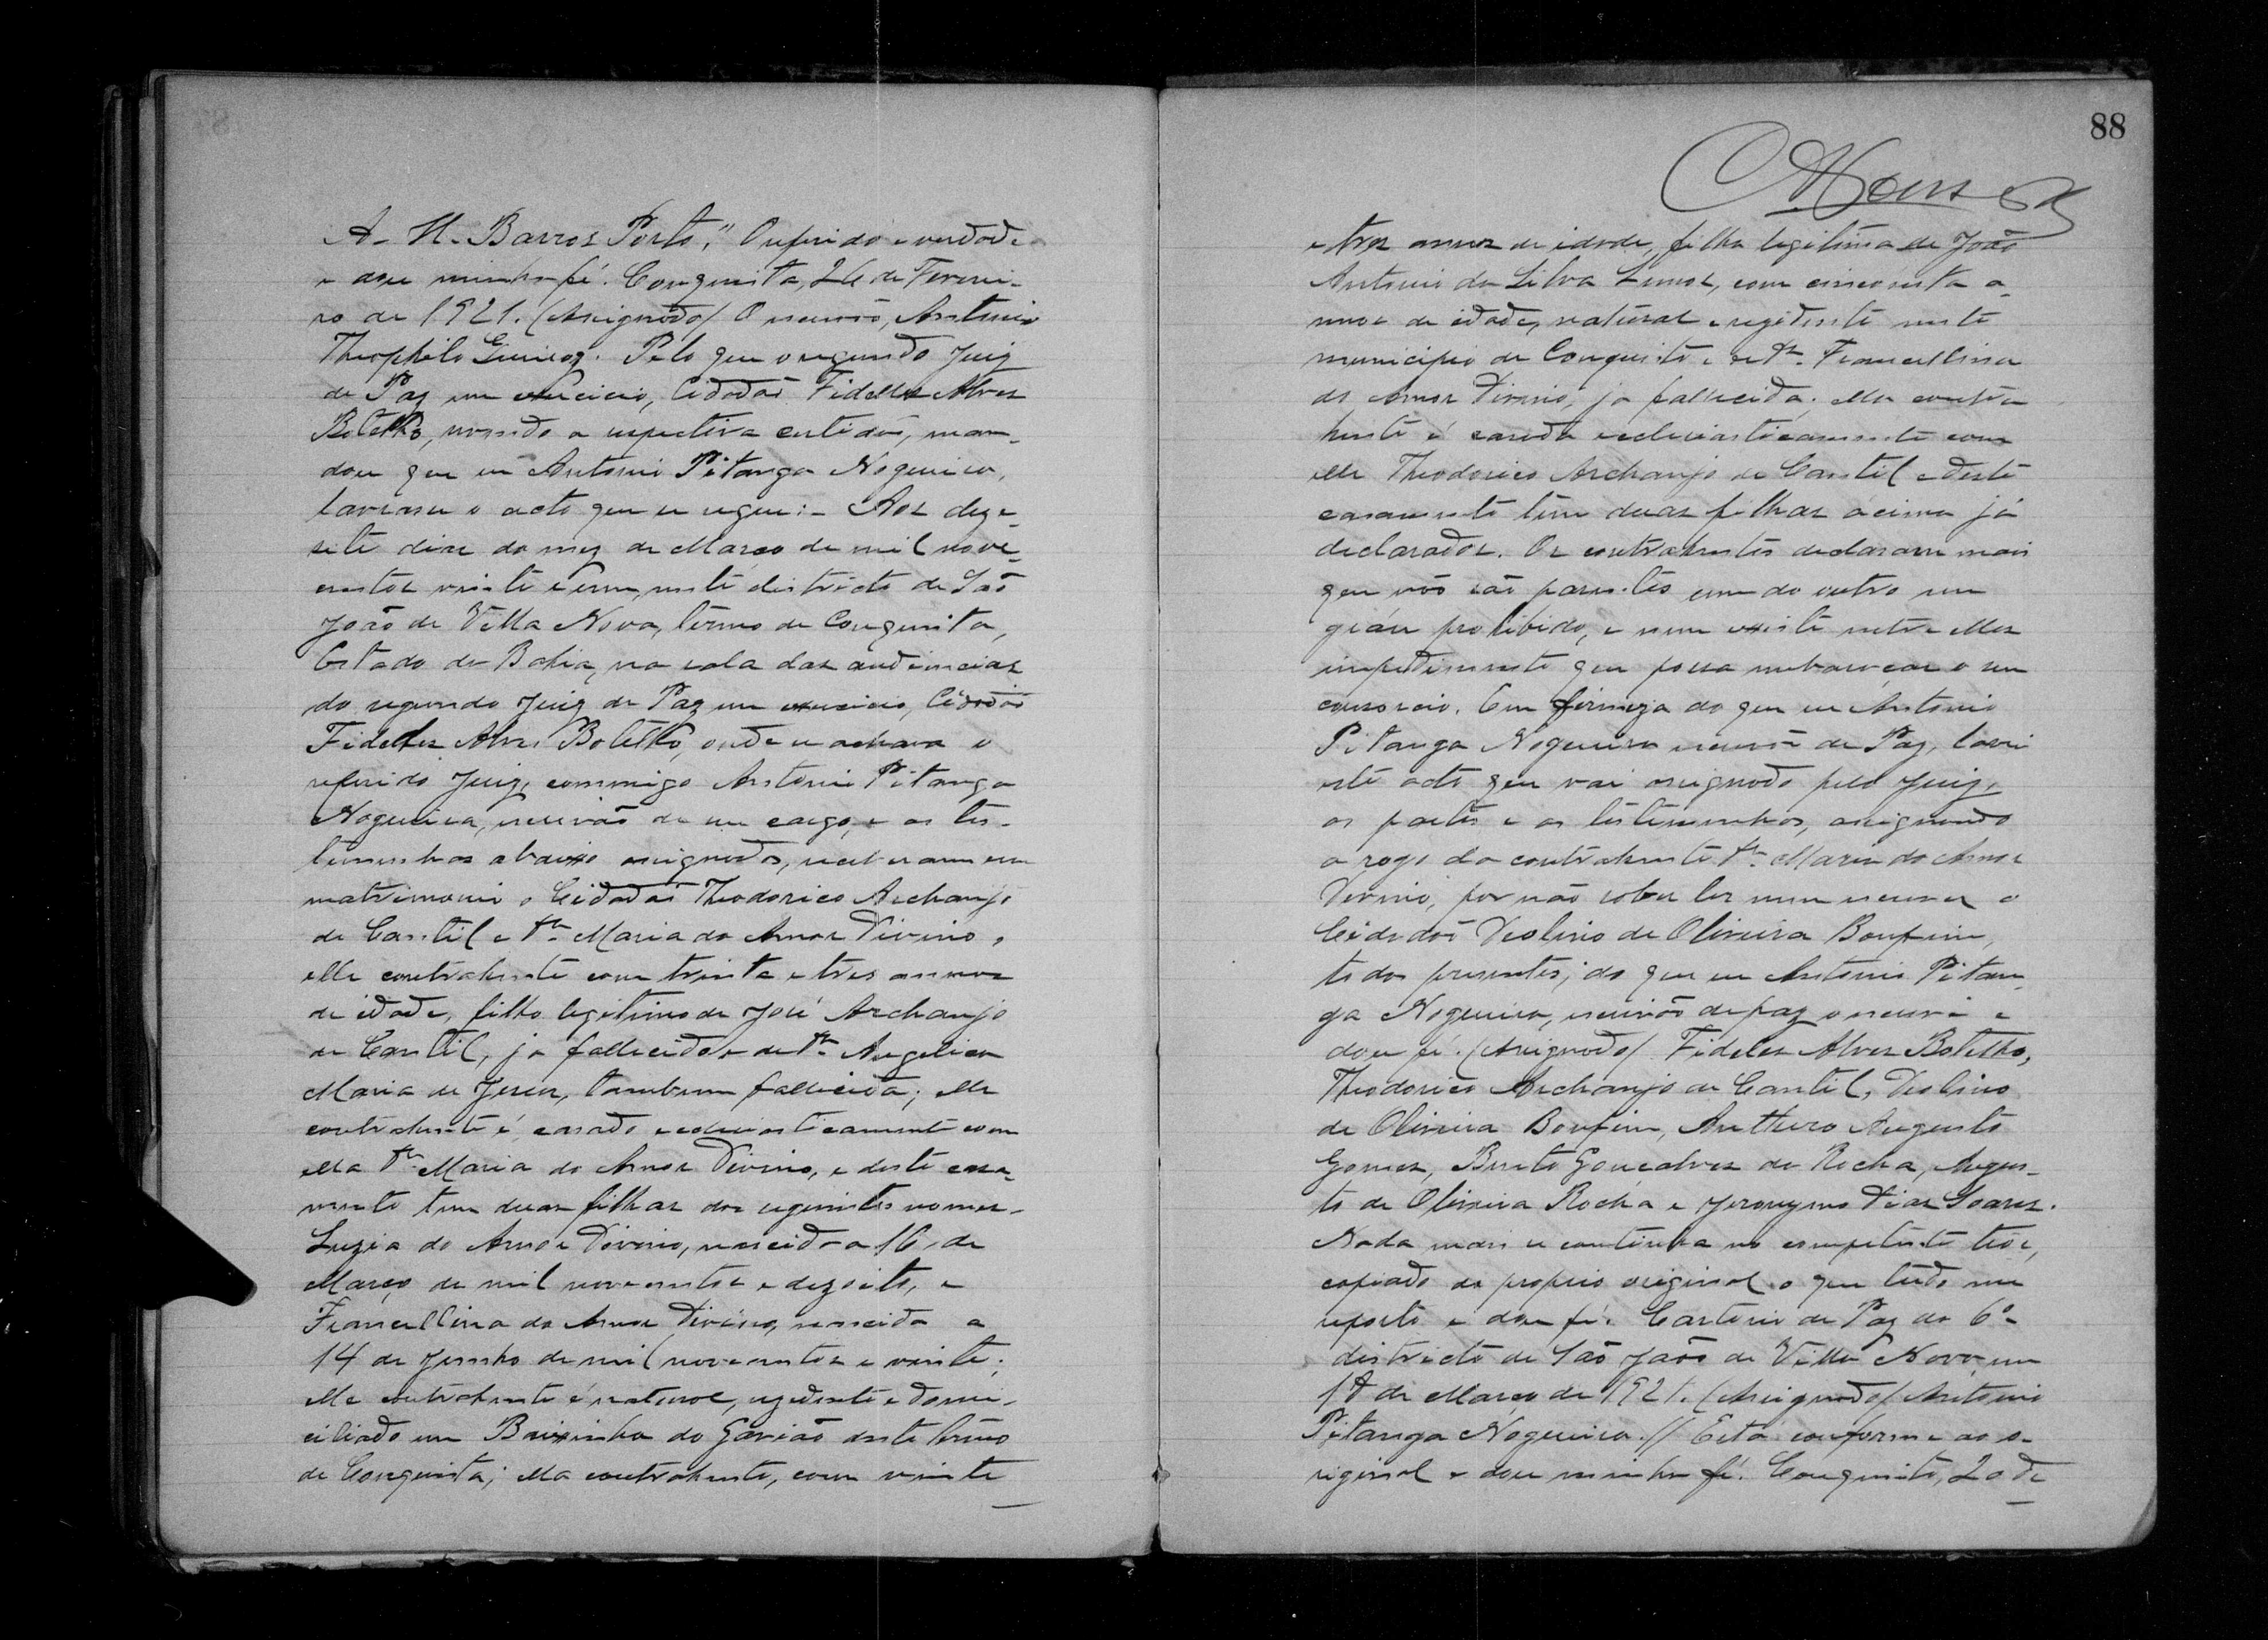 A. H. Barros Porto." O referido é verdade
e dou minha fé. Conquista, 26 de Feverei-
ro de 1921. (Assignado) O escrivão, Antonio
Theophilo. Pelo que o segundo Juiz
de Paz em exercicio, Cidadão Fideles Alves
Botelho, a respectiva certidão, man-
dou que eu Antonio Pitanga Nogueira,
lavrasse o acto que se segue:- Aos deze-
sete dias do mez de Março de mil nove-
centos vinte e um, neste districto de São
João de Villa Nova, termo de Conquista,
Estado da Bahia, na sala das audiencias
do segundo Juiz de Paz em exercicio, Cidadão
Fideles Alves Botelho, onde se achava o
referido Juiz, commigo Antonio Pitanga
Nogueira, escrivão de seu cargo, e as tes-
temunhas abaixo assignadas, receberam em
matrimonio o Cidadão Theodorico Archanjo
de Cantil e Dª Maria do Amor Divino,
elle contrahente com trinta e tres annos
de idade, filho legitimo de José Archanjo
de Cantil, ja fallecido e de Dª Angelica
Maria de Jesus, tambem fallecida; elle
contrahente é casado ecclesiasticamente com
ella Dª Maria do Amor Divino, e deste casa-
mento tem duas filhas dos seguintes nomes-
Luzia do Amor Divino, nascida a 16 de
Março de mil novecentos e dezoito, e
Francellina do Amor Divino, nascida a
14 de Junho de mil novecentos e vinte;
elle contrahente é natural, rezidente e domi-
ciliado em Baixinha do Gavião deste termo
de Conquista; ella contrahente, com vinte
88
e tres annos de idade, filha legitima de João
Antonio da Silva Lemos, com cincoenta a-
nnos de idade, natural e rezidente neste
municipio de Conquista e de Dª Francellina
do Amor Divino, ja fallecida; ella contra-
hente é casada ecclesiasticamente com
elle Theodorico Archanjo de Cantil e deste
casamento tem duas filhas acima já
declarados. Os contrahentes declararam mais
que não são parentes um do outro em
gráu prohibido, e nem existe entre elles
impedimento que possa embaraçar o seu
consorcio. Em firmeza do que eu Antonio
Pitanga Nogueira escrivão de Paz, lavrei
este acto que vai assignado pelo Juiz,
as partes e as testemunhas, assignando
a rogo da contrahente Dª Maria do Amor
Divino, por não saber ler nem escrever o
Cidadão Deolino de Oliveira Bomfim,
todos presentes; do que eu Antonio Pitan-
ga Nogueira, escrivão de paz o escrevi e
dou fé. (Assignado) Fideles Alves Botelho,
Theodorico Archanjo de Cantil, Deolino
de Oliveira Bomfim, Anthero Augusto
Gomes, Bento Gonçalves da Rocha, Augus-
to de Oliveira Rocha e Jeronymo Dias Soares.
Nada mais se continha no competente
copiado do proprio original o que tudo me
reporto e dou fé. Cartorio de Paz do 6º
districto de São João de Villa Nova em
de Março de 1921. (Assignado) Antonio
Pitanga Nogueira.// Está conforme ao o-
riginal e dou minha fé. Conquista, 20 de